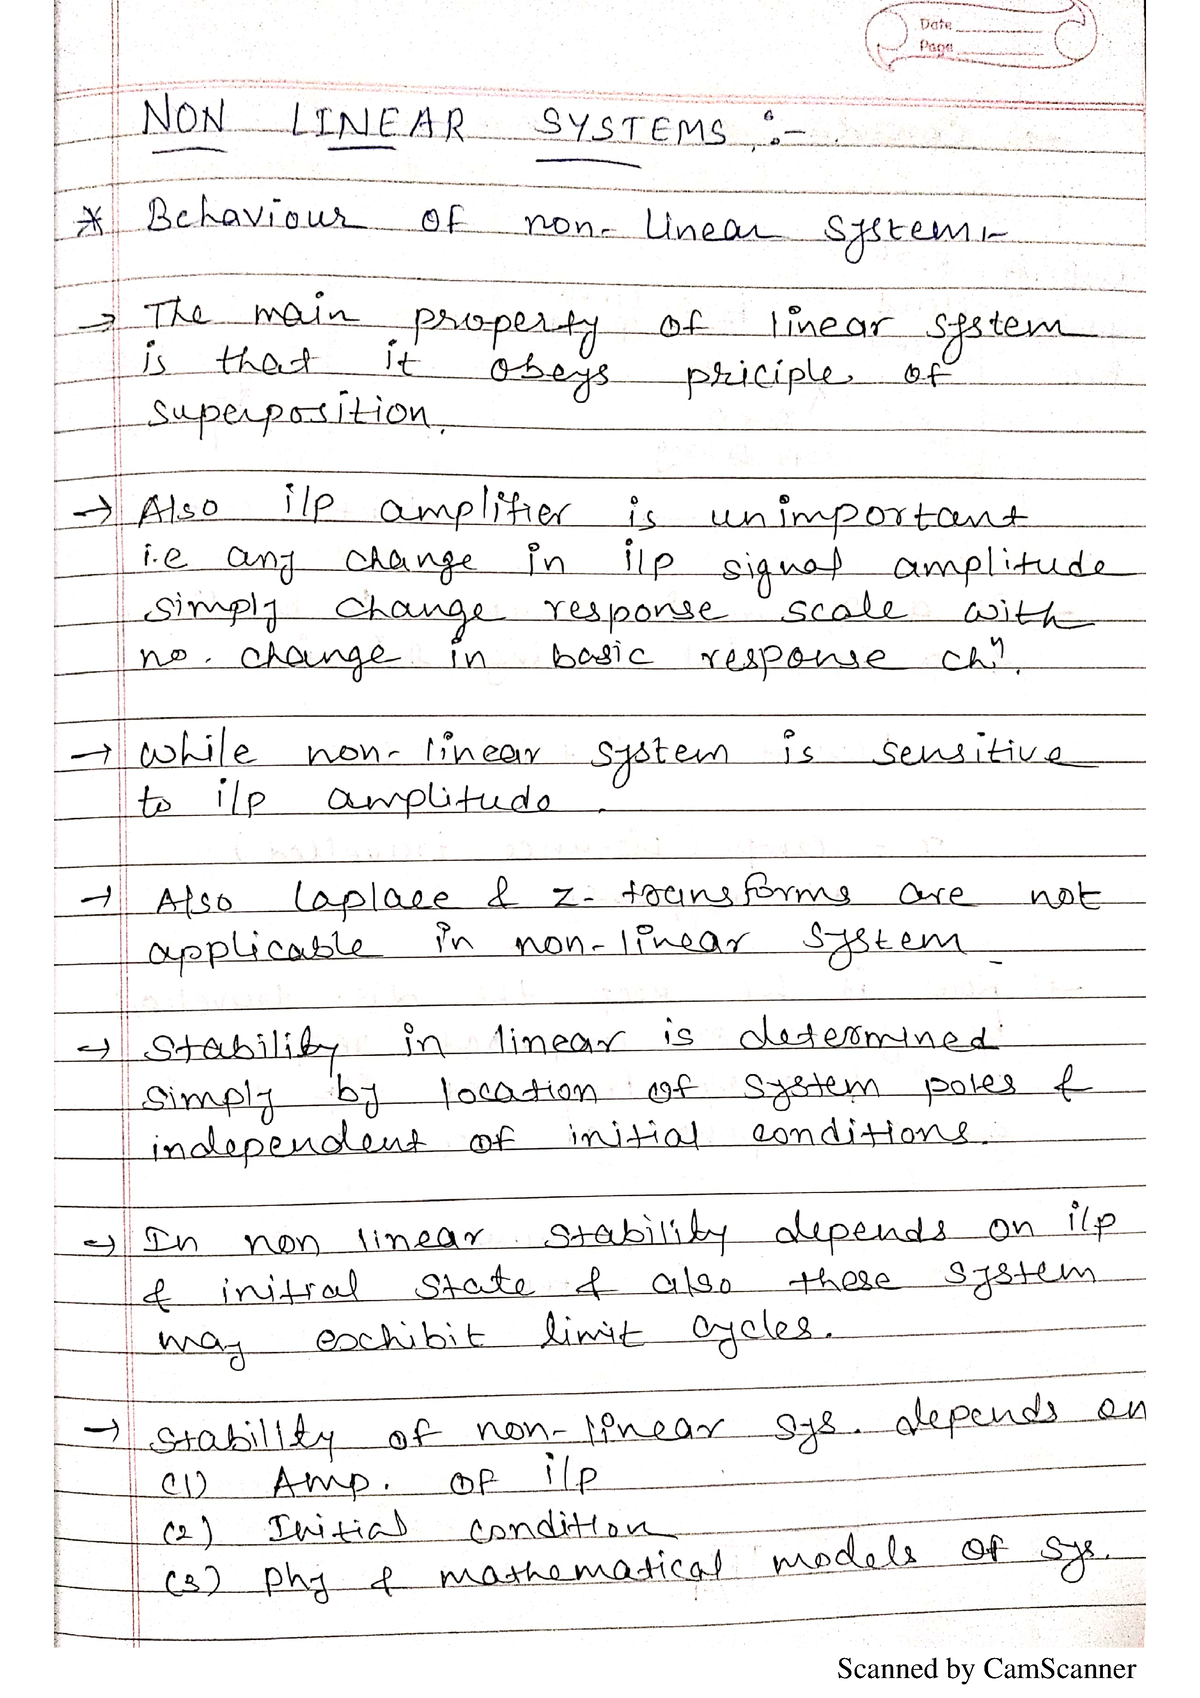 Date
Page
NON LINEAR SYSTEMS :-
* Behaviour of non-linear system:-
→ The main property of linear system
is that it obeys priciple of
superposition.
→ Also i/p amplifier is unimportant
i.e any change in i/p signal amplitude
simply change response scale with
no. change in basic response chⁿ.
→ while non-linear system is sensitive
to i/p amplitude.
→ Also laplace & z-transforms are not
applicable in non-linear system
→ Stability in linear is determined
simply by location of system poles &
independent of initial conditions.
→ In non linear stability depends on i/p
& initial state & also these system
may exhibit limit cycles.
→ Stability of non-linear sys. depends on
(1) Amp. of i/p
(2) Initial condition
(3) phy & mathematical models of sys.
Scanned by CamScanner